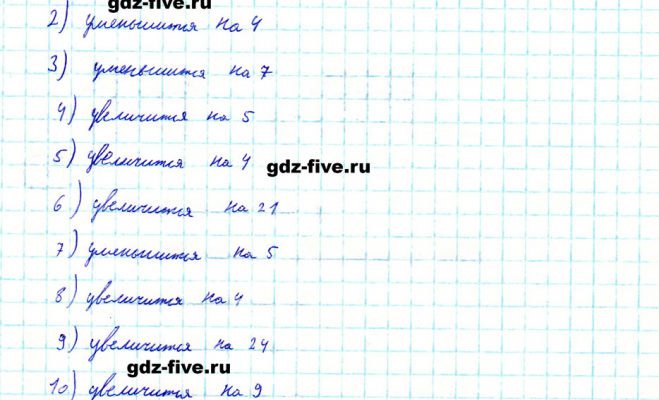 gdz-five.ru
2) уменьшится на 4
3) уменьшится на 7
4) увеличится на 5
5) увеличится на 4
gdz-five.ru
6) увеличится на 21
7) уменьшится на 5
8) увеличится на 4
9) увеличится на 24
gdz-five.ru
10) увеличится на 9